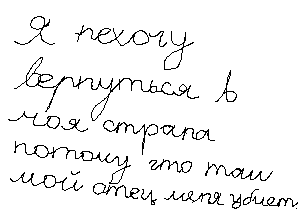 Я нехочу
вернуться в
моя страна
потому что там
мой отец меня убиет.